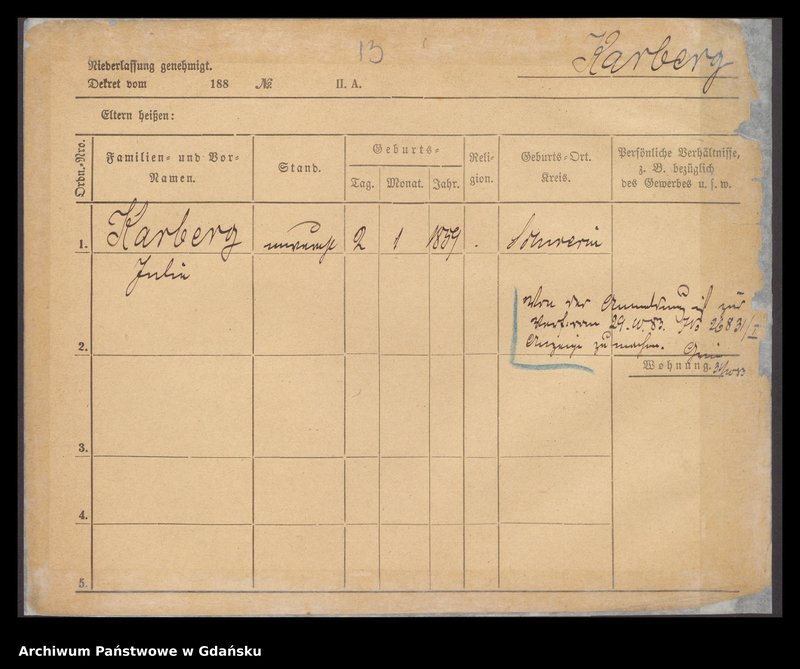 13
Karberg
Niederlassung genehmigt.
Dekret vom 188 № II. A.
Eltern heißen:
Ordn.-Nro.
Familien- und Vor-
Namen.
Stand.
Geburts-
Tag. Monat. Jahr.
Reli-
gion.
Geburts-Ort.
Kreis.
Persönliche Verhältnisse,
z. B. bezüglich
des Gewerbes u. s. w.
1. Karberg unverehl 2 1 1859 . Schwerin
Julie
Von der Anmeldung ist zur
29. 10. 83. 26831/I
Anzeige zu machen.
2.
Wohnung. 31/10 83
3.
4.
5.
Archiwum Państwowe w Gdańsku